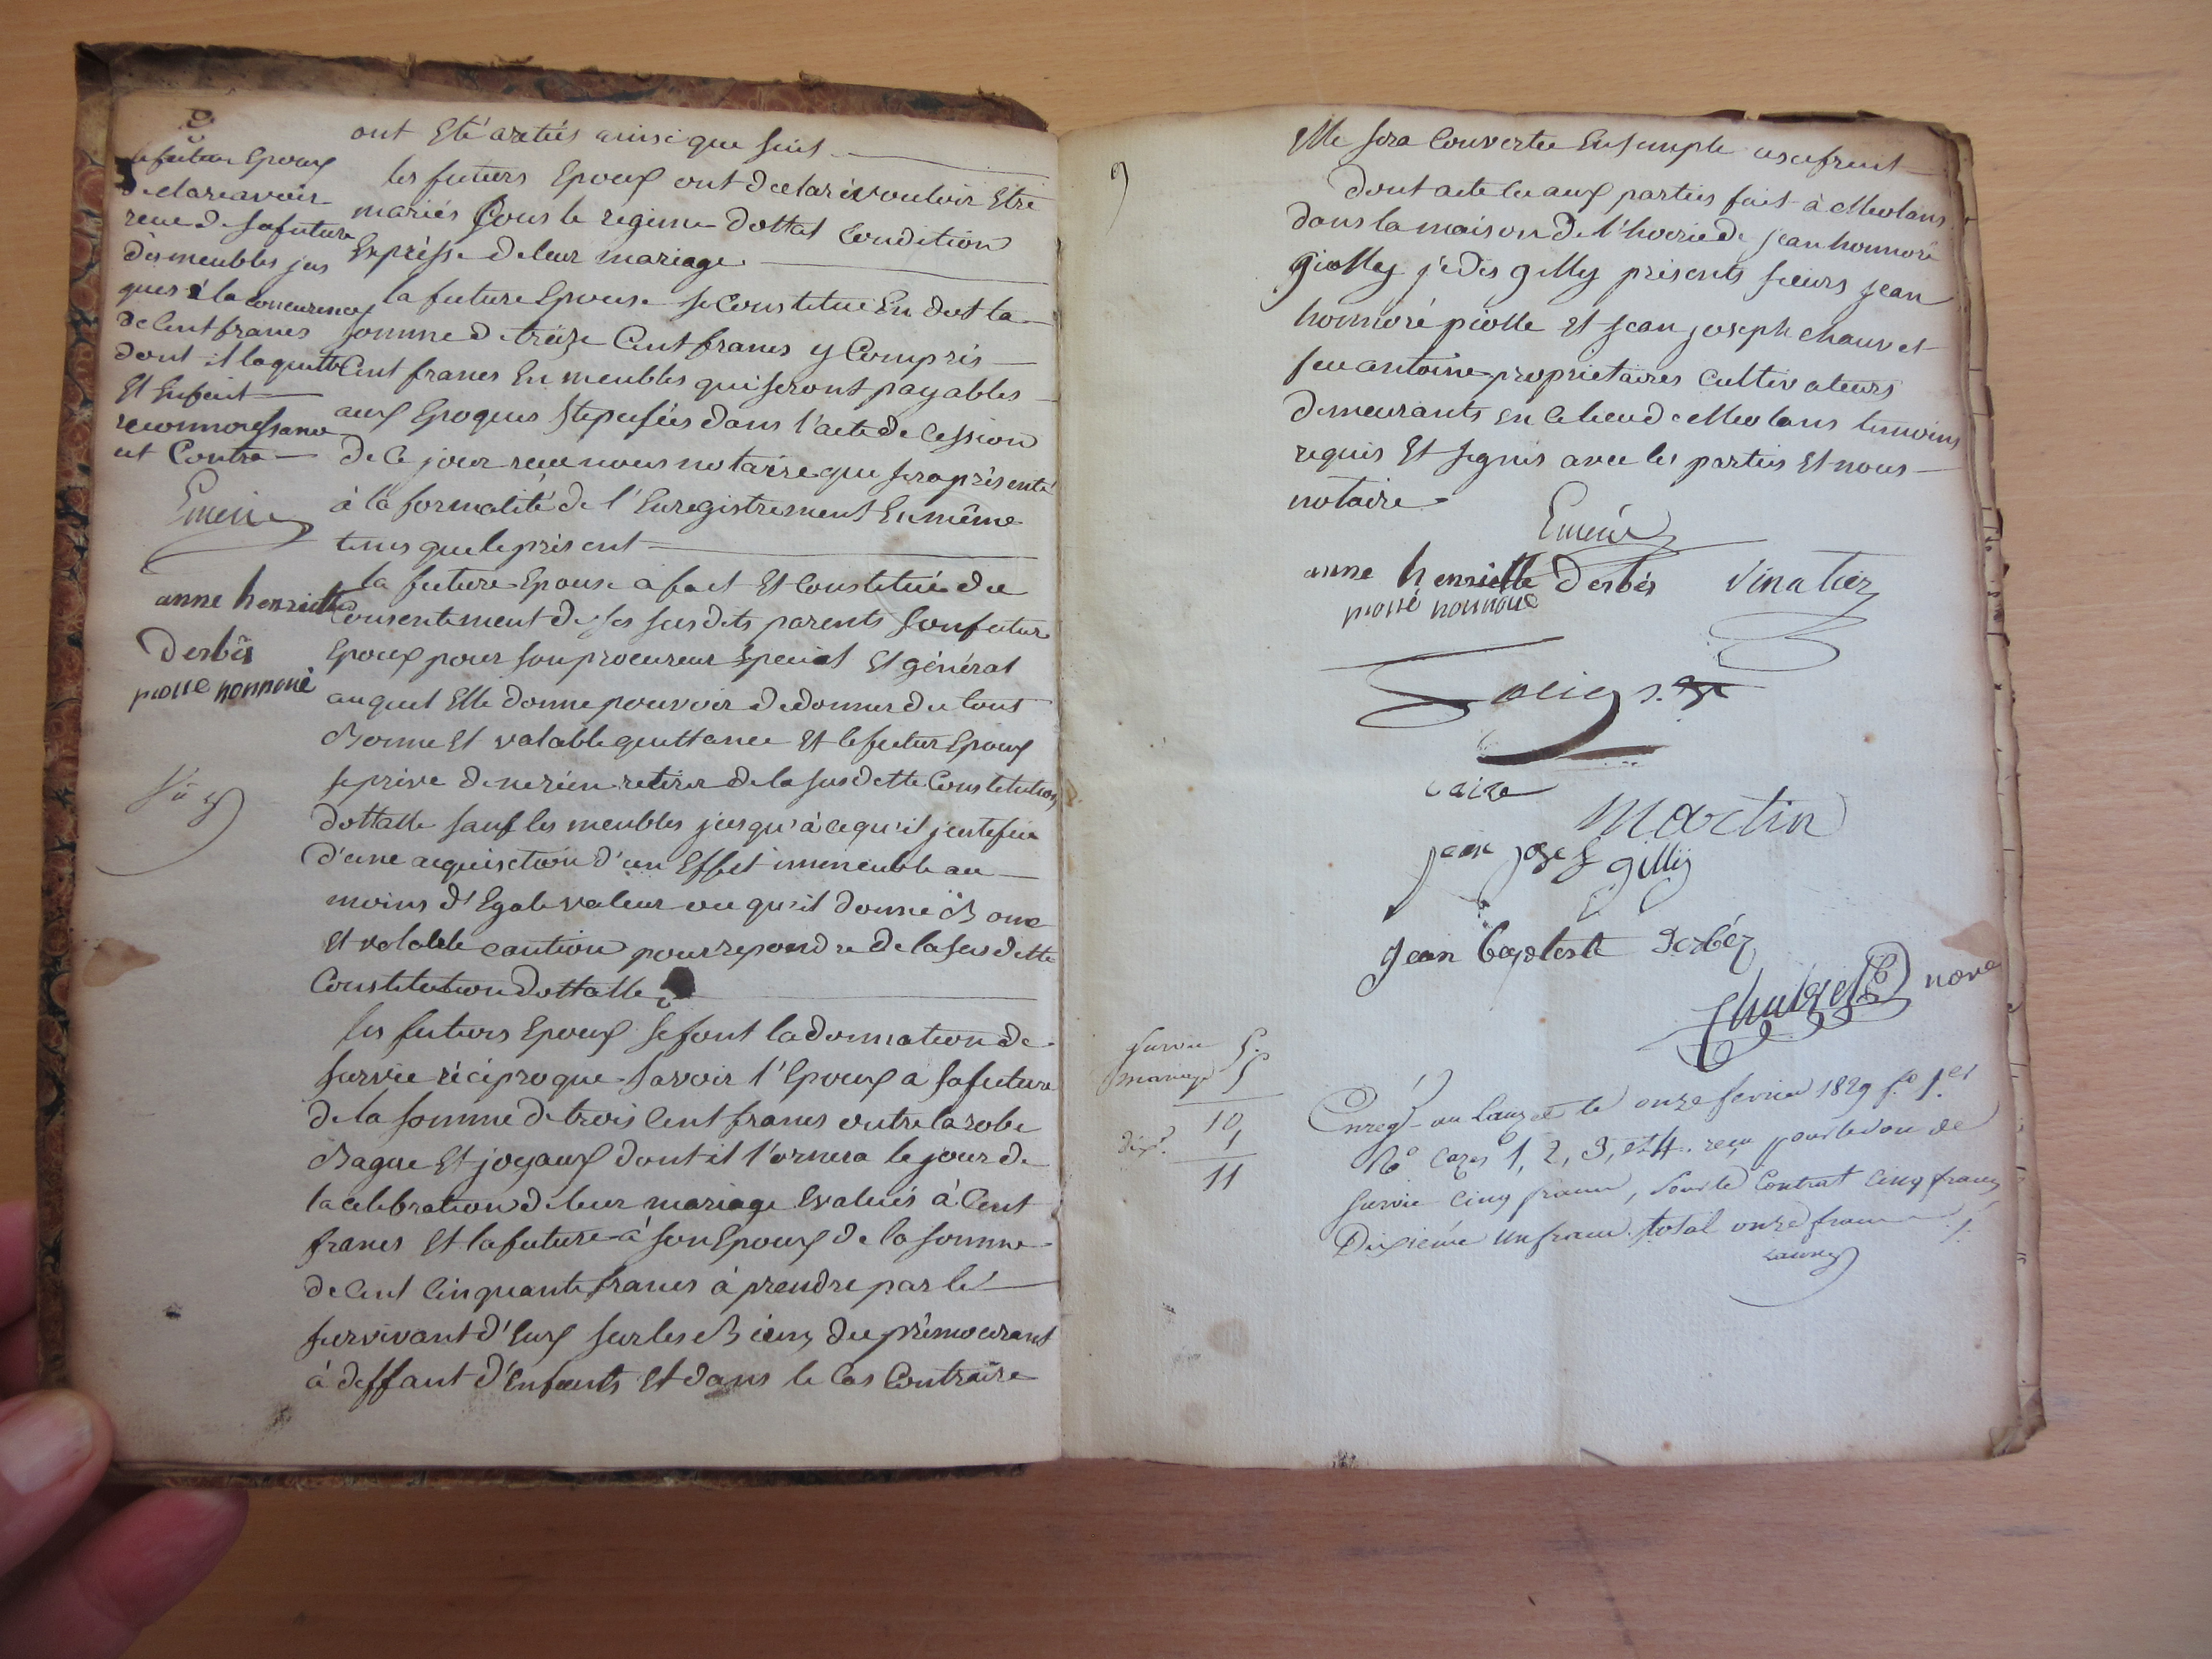 le futur Epoux
declare avoir
recu de sa future
des meubles jus
ques à la concurence
de Cent francs
dont il la quitte
Et Enfait
reconnoissance
et Contre
Emeric
anne henriette
derbès
piolle honnoré
ont Eté arettés ainsi que suit
les futurs Epoux ont declaré vouloir Etre
mariés sous le regime dottal Condition
Expresse de leur mariage.
la future Epouse se Constitue En dot la
somme de treize Cent francs y Compris
Cent francs En meubles qui seront payables
aux Epoques Stipulées dans l'acte de Cession
de Ce jour recu nous notaire qui sera présenté
à la formalité de l'Enregistrement En même
tems que le présent
la future Epouse a fait Et Constitué du
Consentement de ses susdits parents son futur
Epoux pour son procureur Special Et général
auquel Elle donne pouvoir de donner du tout
Bonne Et valable quittance Et le futur Epoux
se prive de ne rien retirer de la susdette Constitution
dottalle sauf les meubles jusqu'à ce qu'il justifie
d'une acquisition d'un Effet immeuble au
moins d'Egale valeur ou qu'il donne Bonne
Et valable caution pour repondre de la susdette
Constitution dottalle
les futurs Epoux se font la donnation de
survie réciproque Savoir l'Epoux a sa future
de la somme de trois Cent francs outre la robe
Bague Et joyaux dont il l'ornera le jour de
la celebration de leur mariage Evalués à Cent
francs Et la future à son Epoux de la somme
de Cent Cinquante francs à prendre par le
survivant d'Eux sur les Biens du prémourant
à deffaut d'Enfants Et dans le Cas Contraire
Elle sera Convertie En simple usufruit
dont acte lu aux parties fait à Meolans
dans la maison de l'hoirie de jean honnoré
giolley je dis gilly présents sieurs jean
honnoré piolle Et jean joseph chauvet
feu antoine proprietaires Cultivateurs
demeurants en Ce lieu de Meolans temoins
requis Et signés avec les parties Et nous
notaire
Emeric
anne henriette derbès vinatier
piolle honnoré
caire
Martin
jean josef gilly
jean baptiste Derbéz
Chauvet nore
survie 5.
mariage 5
10,
dixe. 1
11
Enregé au Lauzet le onze fevrier 1829 fo 1er
Ro Cazes 1, 2, 3, et 4. recu pour le don de
survie cinq francs, pour le Contrat Cinq francs
Dixieme un franc. total onze francs